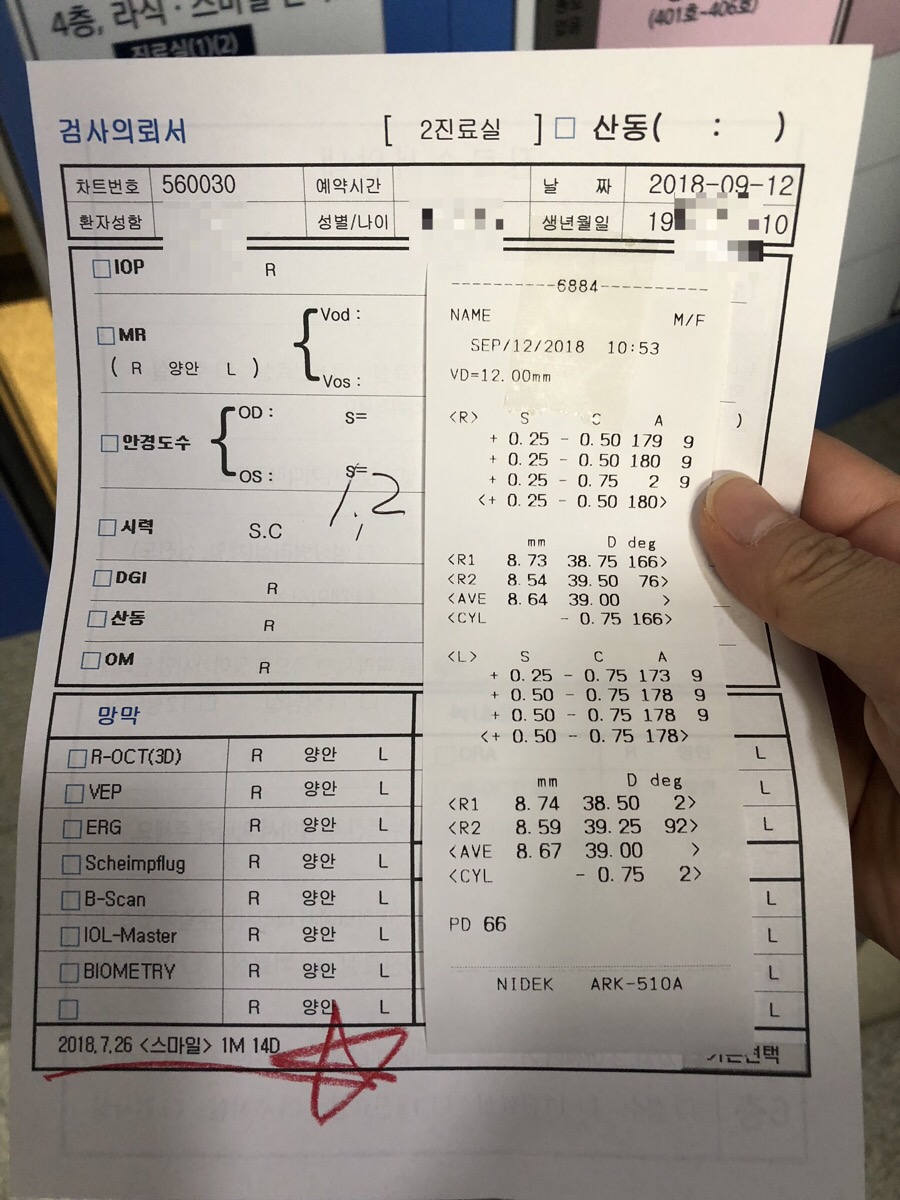 4층, 라식 · 스마일
진료실(1)(2)
(401호~406호)
검사의뢰서 [ 2진료실 ] □ 산동( : )
차트번호 560030 예약시간 날 짜 2018-09-12
환자성함 성별/나이 생년월일 19 10
□IOP R
□MR Vod :
( R 양안 L )
Vos :
□안경도수 OD : S=
OS : S=
1.2
□시력 S.C /
□DGI R
□산동 R
□OM R
망막
□R-OCT(3D) R 양안 L
□VEP R 양안 L
□ERG R 양안 L
□Scheimpflug R 양안 L
□B-Scan R 양안 L
□IOL-Master R 양안 L
□BIOMETRY R 양안 L
□ R 양안 L
2018.7.26 <스마일> 1M 14D
----------6884----------
NAME M/F
SEP/12/2018 10:53
VD=12.00mm
<R> S C A
+ 0.25 - 0.50 179 9
+ 0.25 - 0.50 180 9
+ 0.25 - 0.75 2 9
<+ 0.25 - 0.50 180>
mm D deg
<R1 8.73 38.75 166>
<R2 8.54 39.50 76>
<AVE 8.64 39.00 >
<CYL - 0.75 166>
<L> S C A
+ 0.25 - 0.75 173 9
+ 0.50 - 0.75 178 9
+ 0.50 - 0.75 178 9
<+ 0.50 - 0.75 178>
mm D deg
<R1 8.74 38.50 2>
<R2 8.59 39.25 92>
<AVE 8.67 39.00 >
<CYL - 0.75 2>
PD 66
NIDEK ARK-510A
)
L
L
L
L
L
L
L